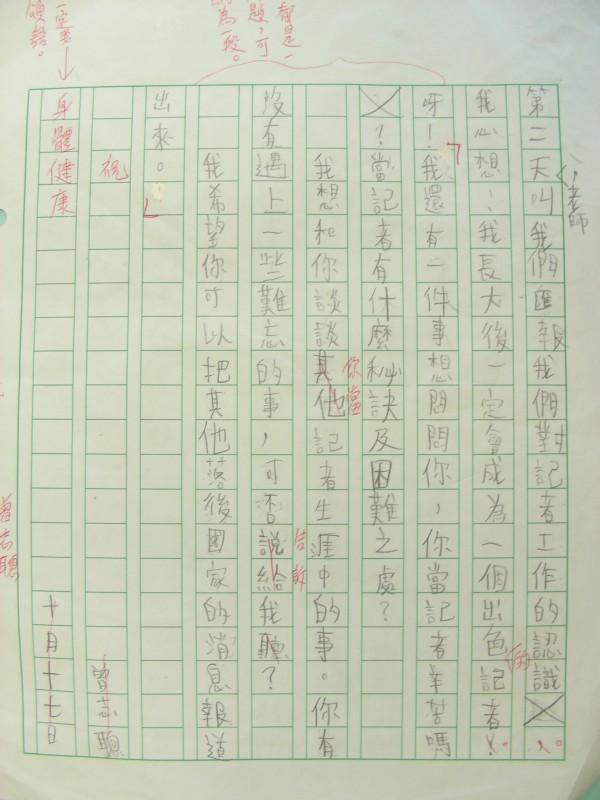 第二天叫我們匯報我們對記者工作的認識
，老師
我心想，我長大後一定會成為一個出色記者。
的
呀！我還有一件事想問問你，你當記者辛苦嗎
？當記者有什麼秘訣及困難之處？
我想和你談談其他記者生涯中的事。你有
你當
沒有遇上一些難忘的事，可否說給我聽？
告訴
我希望你可以把其他落後國家的消息報道
出來。
祝
曾志聰
身體健康
十月十七日
都是一
題，可
為一段。
一定要
頌語。
曾志聰